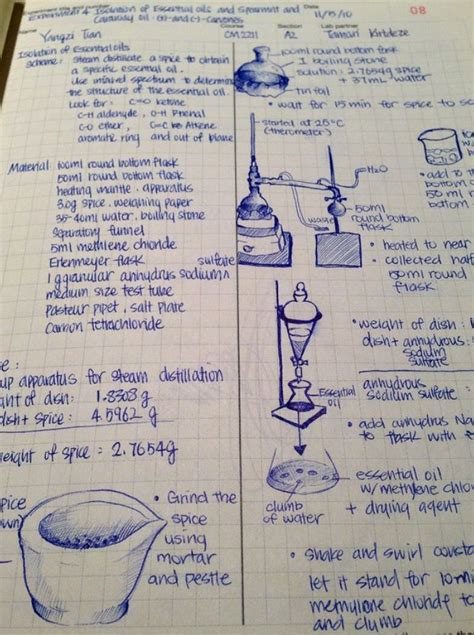 Experiment title and number
Experiment 4 Isolation of Essential oils and Spearmint and
Caraway Oil: (+)-and(-)-Carvones
Date
11/15/10
08
Name
Yangzi Tian
Course
CM2211
Section
A2
Lab partner
Tamari Kirtdeze
Isolation of Essential oils
scheme: Steam distillate a spice to obtain
a specific essential oil.
Use infrared spectrum to determine
the structure of the essential oil.
Look for: C=O ketone
C-H aldehyde, O-H Phenol
C-O ether, C=C Alkene
aromatic ring and out of plane
Material 100ml round bottom flask
50ml round bottom flask
heating mantle, apparatus
3.0g spice, weighing paper
35-40ml water, boiling stone
Separatory funnel
5ml methlene chloride
Erlenmeyer flask
sulfate
1g granular anhydrus sodium^
medium size test tube
Pasteur pipet, salt plate
Carbon tetrachloride
up apparatus for steam distillation
ght of dish: 1.8308 g
dish + spice: 4.5962 g
weight of spice = 2.7654g
spice
own)
• Grind the
spice
using
mortar
and pestle
100ml round bottom flask
1 boiling stone
solution: 2.7654g spice
+ 37mL water
tin foil
• wait for 15 min for spice to
started at 25°C
(thermometer)
H2O
waste
50ml
round bottom
flask
• add to
bottom
50 ml
bottom
• heated to near
• collected half
50ml round
flask
• weight of dish:
dish + anhydrous
sodium
sulfate
anhydrous
sodium sulfate =
Essential
oil
• add anhydrous Na
to flask with
essential oil
w/ methylene chlor
+ drying agent
clumb
of water
• shake and swirl consta
let it stand for 10min
methylene chloride to
and clumb